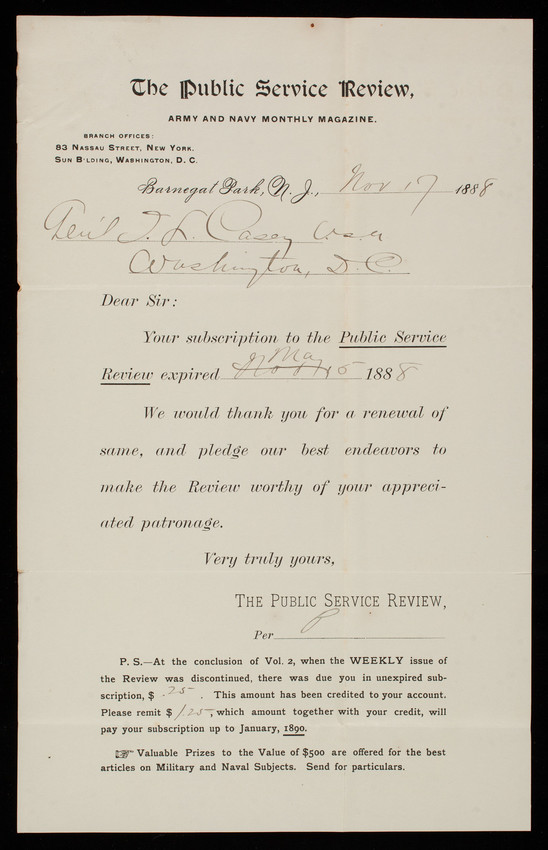 The Public Service Review,
ARMY AND NAVY MONTHLY MAGAZINE.
BRANCH OFFICES:
83 NASSAU STREET, NEW YORK.
SUN B'LDING, WASHINGTON, D. C.
Barnegat Park, N. J., Nov 17 1888
Gen'l T. L. Casey U.S.A
Washington, D.C.
Dear Sir:
Your subscription to the Public Service
May
Review expired Nov 15 1888
We would thank you for a renewal of
same, and pledge our best endeavors to
make the Review worthy of your appreci-
ated patronage.
Very truly yours,
THE PUBLIC SERVICE REVIEW,
Per P
P. S.—At the conclusion of Vol. 2, when the WEEKLY issue of
the Review was discontinued, there was due you in unexpired sub-
scription, $ .75 . This amount has been credited to your account.
Please remit $ 1.25, which amount together with your credit, will
pay your subscription up to January, 1890.
☞ Valuable Prizes to the Value of $500 are offered for the best
articles on Military and Naval Subjects. Send for particulars.